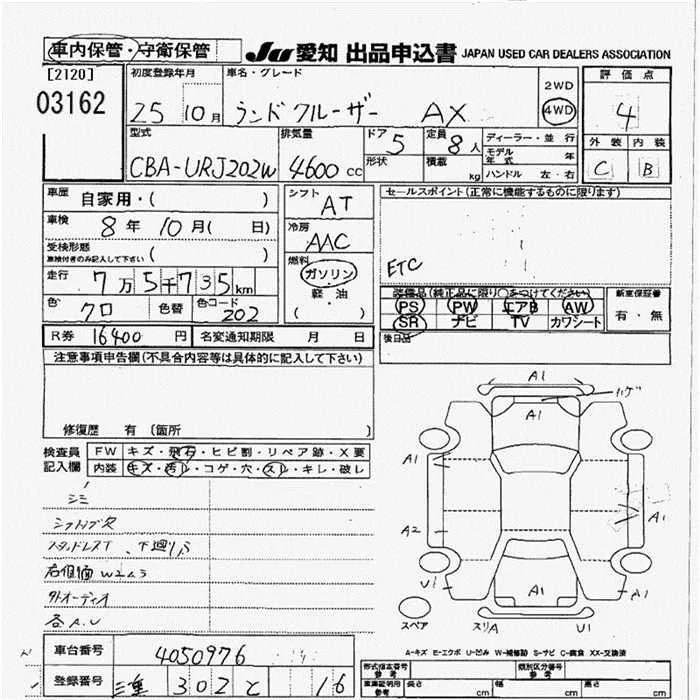 車内保管・守衛保管 JU 愛知 出品申込書 JAPAN USED CAR DEALERS ASSOCIATION
[2120] 初度登録年月 車名・グレード 2WD 評価点
03162 25 10月 ランドクルーザー AX 4WD 4
型式 排気量 ドア 5 定員 8人 ディーラー・並行 外装 内装
CBA-URJ202W 4600cc 形状 積載 kg モデル年式 年 C B
ハンドル 左・右
車歴 自家用・( ) シフト AT セールスポイント(正常に機能するものに限ります)
車検 8年 10月( 日) 冷房 AAC
受検形態 ( )
車検付きのみ記入して下さい
走行 7万5千735km 燃料 ガソリン・軽・油 ( ) ETC
色 クロ 色替 色コード 202 装備品(純正品に限り○をつけてください) 新車保証書
PS PW エアB AW 有・無
R券 16400円 名変通知期限 月 日 SR ナビ TV カワシート
注意事項申告欄(不具合内容等は具体的に記入して下さい) 後日品
修復歴 有 (箇所 )
検査員記入欄 FW キズ・飛石・ヒビ割・リペア跡・X要
内装 キズ・汚レ・コゲ・穴・スレ・キレ・破レ
シミ
シフトノブ欠
スタッドレスT、下廻りS
右側面W2.3
外オーディオ
各A.U
A1
ハゲ
A1
A1
A2
A1
U1
A1
A1
スペア スリA U1
A-キズ E-エクボ U-凹み W-補修跡 S-サビ C-腐食 XX-交換済
車台番号 4050976
登録番号 三重 302 と 16
形式指定番号 参考 類別区分番号 参考
車庫証明用 参考 長さ cm 幅 cm 高さ cm